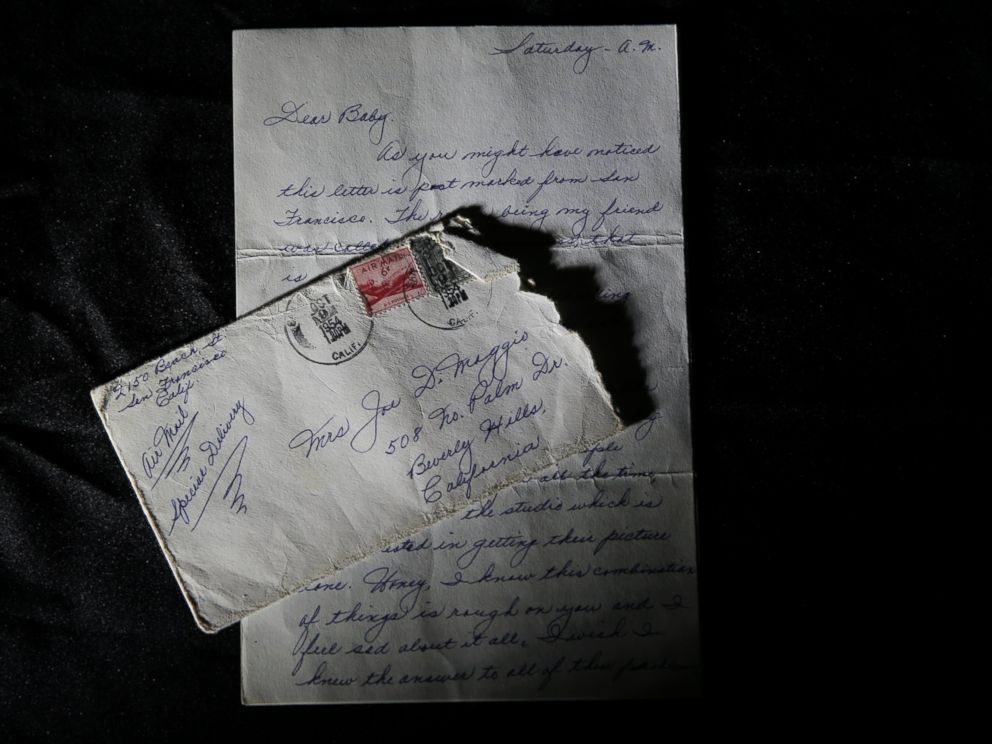 Saturday - A.M.
Dear Baby,
As you might have noticed
this letter is post marked from San
Francisco. The being my friend
was that
is
AIR MAIL
6¢
OCT
1954
CALIF.
1954
CALIF.
2150 Beach St.
San Francisco
Calif.
Air Mail
Special Delivery
Mrs Joe DiMaggio
508 No. Palm Dr.
Beverly Hills,
California
all the time,
the studio which is
in getting their picture
Honey, I know this combination
of things is rough on you and I
feel sad about it all. I wish I
knew the answer to all of this